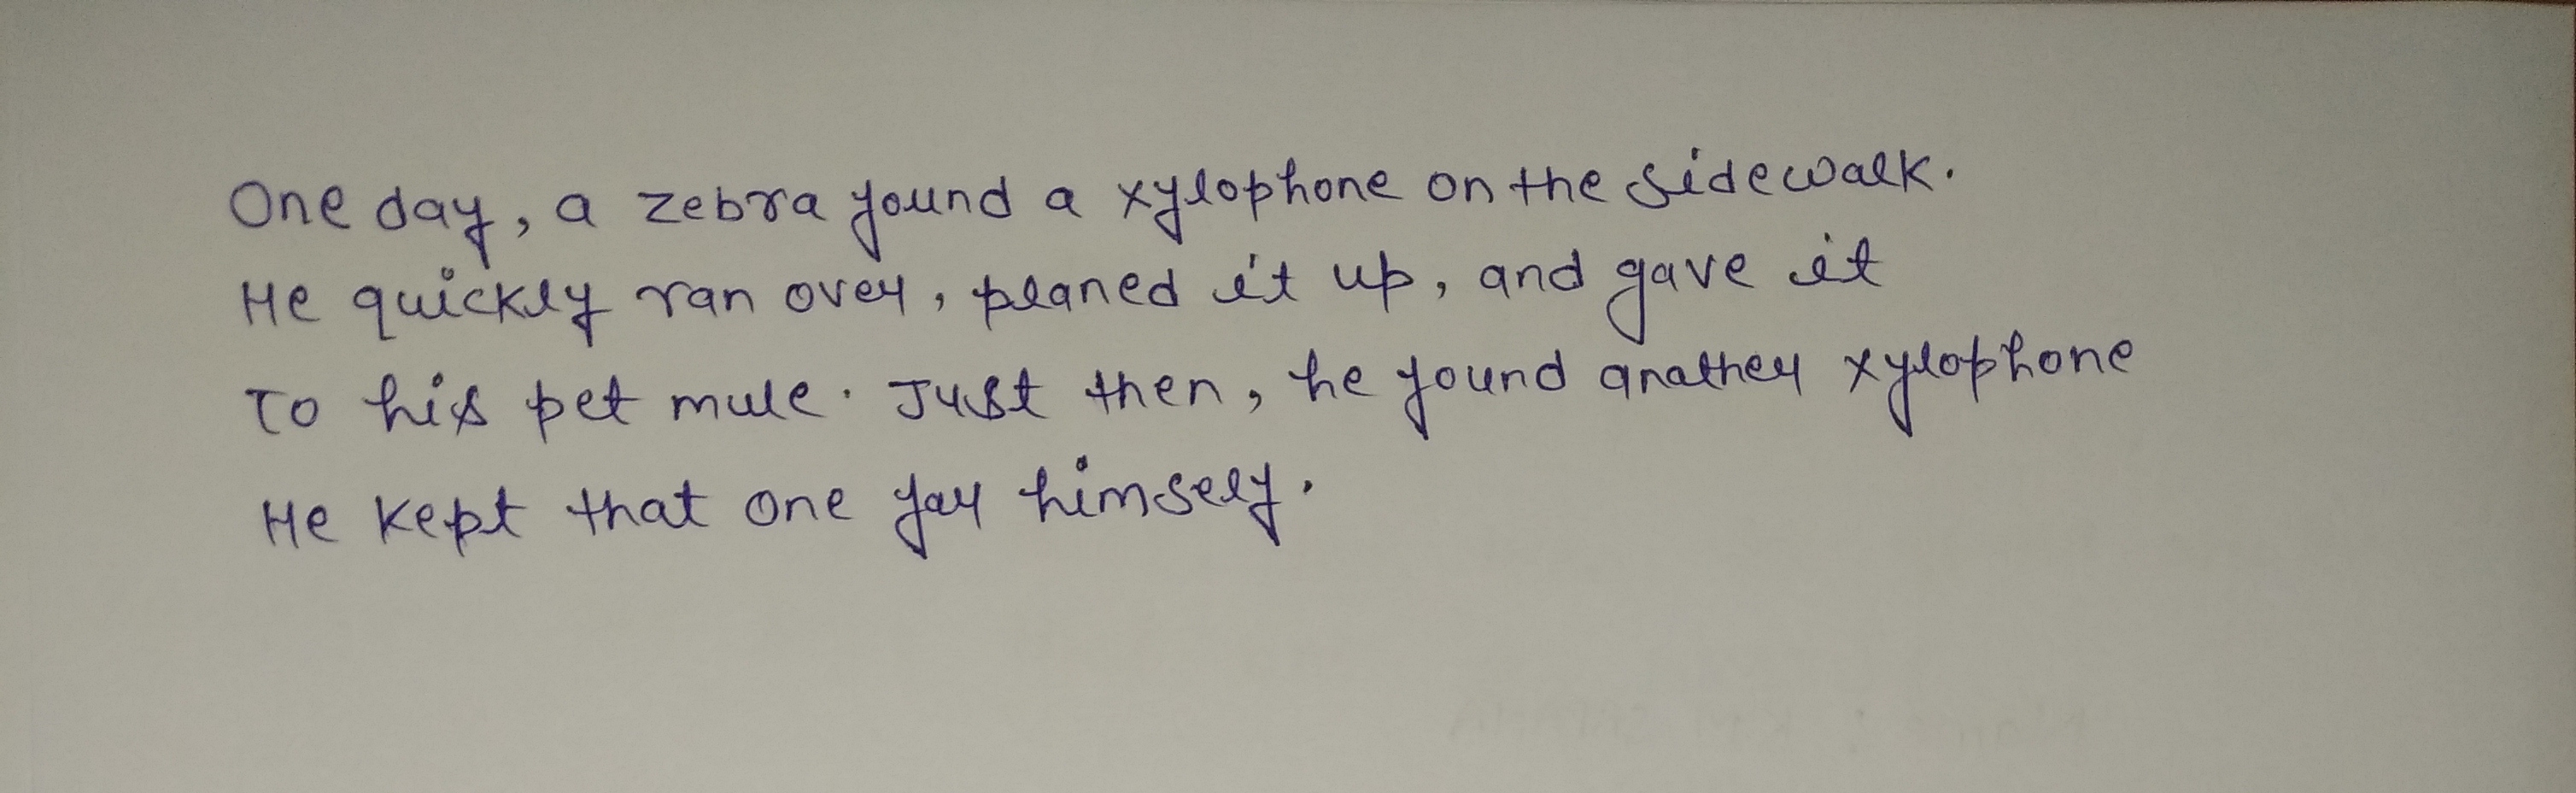 One day, a zebra found a xylophone on the sidewalk.
He quickly ran over, planed it up, and gave it
To his pet mule. Just then, he found anather xylophone
He kept that one for himself.